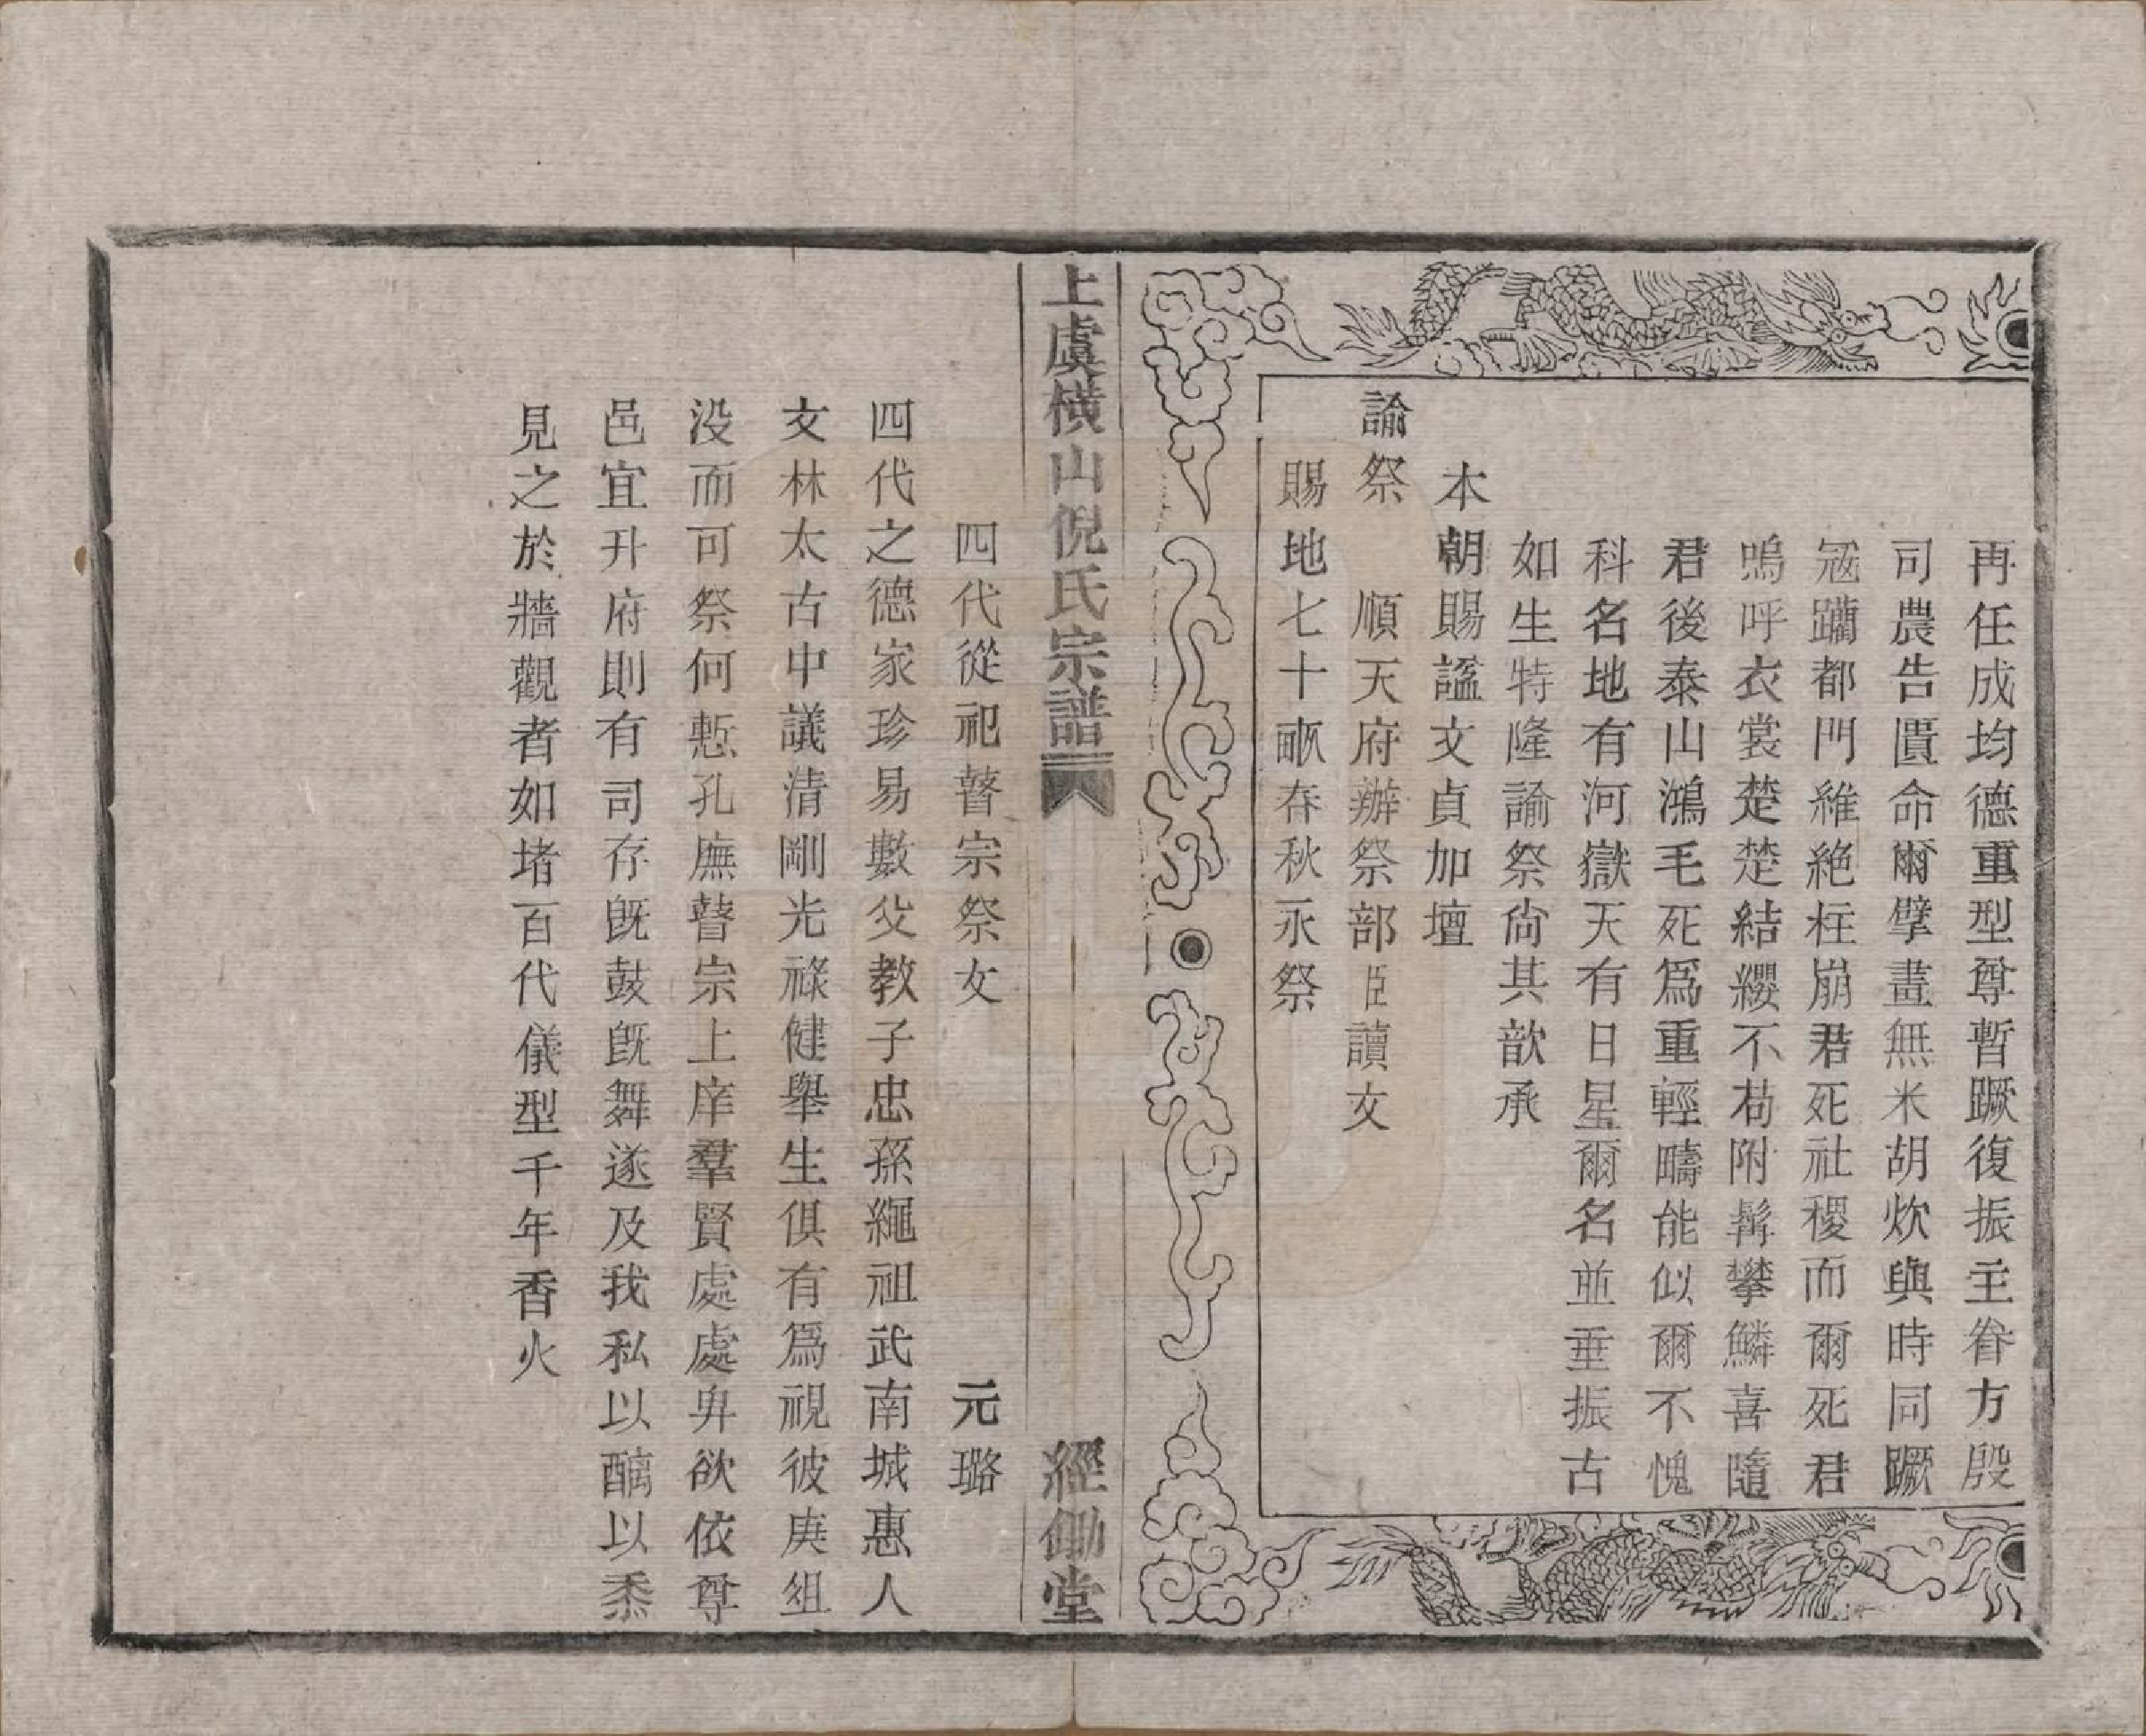 再任成均德重型尊暫蹶復振主眷方殷
司農告匱命爾擘畫無米胡炊與時同蹶
冦躪都門維絶柱崩君死社稷而爾死君
嗚呼衣裳楚楚結纓不苟附髯攀鱗喜隨
君後泰山鴻毛死爲重輕疇能似爾不愧
科名地有河嶽天有日星爾名並垂振古
如生特隆諭祭尙其歆承
本朝賜諡文貞加壇
諭祭　順天府辦祭部臣讀文
賜地七十畝春秋永祭
上虞橫山倪氏宗譜
經鋤堂
四代從祀瞽宗祭文　元璐
四代之德家珍易數父教子忠孫繩祖武南城惠人
文林太古中議淸剛光祿健舉生俱有爲視彼庚俎
没而可祭何慙孔廡瞽宗上庠羣賢處處舁欲依尊
邑宜升府則有司存旣鼓旣舞遂及我私以酾以黍
見之於牆觀者如堵百代儀型千年香火